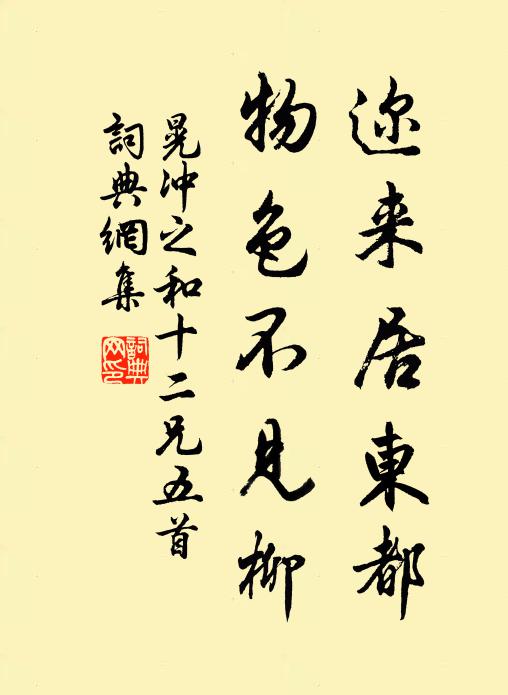 迩来居東都
物色不見柳
晁冲之和十二兄五首
詞典網集
詞典网印